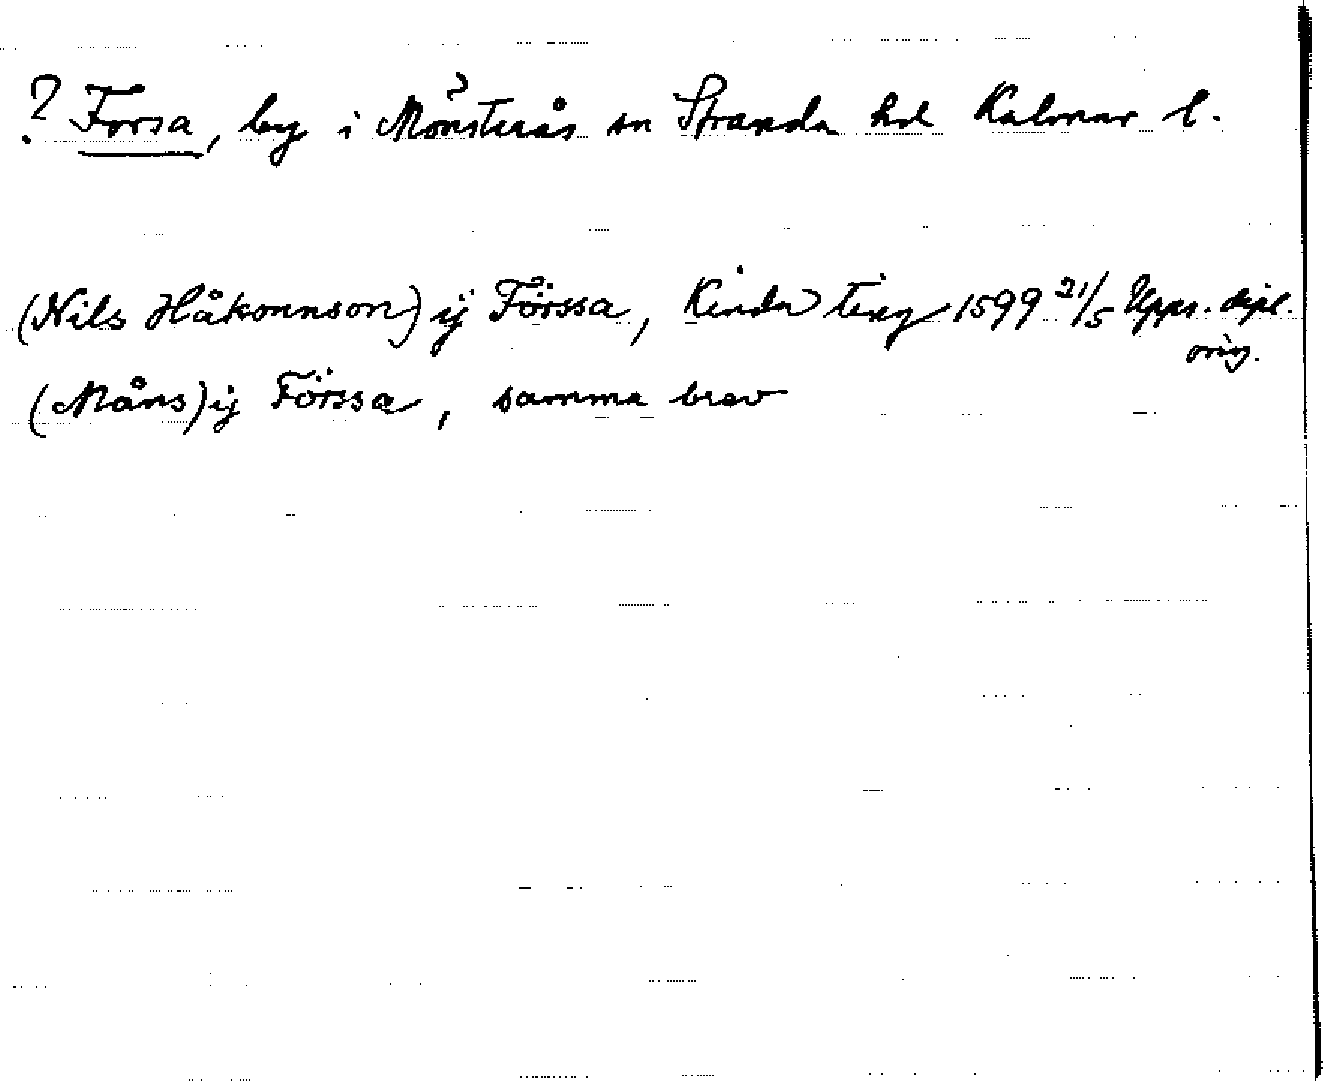 ? Forsa, by i Mönsterås sn Stranda hd Kalmar l.
(Nils Håkonnson) ij Förssa, Kinda ting 1599 21/5 Upps. dipl.
orig.
(Måns) ij Förssa, samma brev